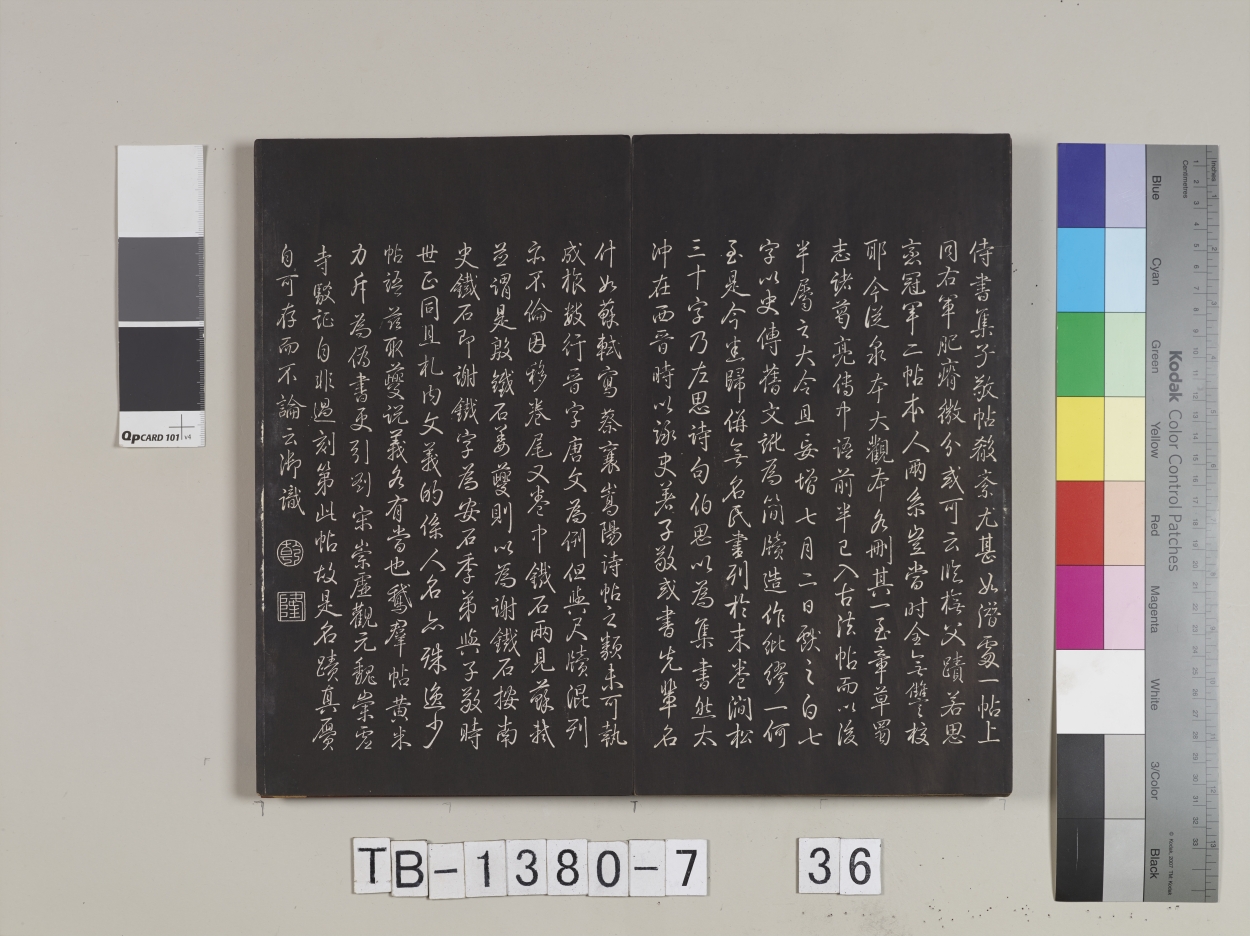 侍書集子敬帖殽紊尤甚如潛處一帖上
同右軍肥瘠微分或可云臨橅父蹟若思
戀冠軍二帖本人兩系豈當时全無讐校
耶今從泉本大觀本各刪其一至章草蜀
志諸葛亮傳中語前半已入古法帖而以後
半屬之大令且妄增七月二日獻之白七
字以史傳舊文訛為簡牘造作紕繆一何
至是今悉歸併無名氏書列於末卷澗松
三十字乃左思诗句伯思以為集書然太
沖在西晉時以詠史著子敬或書先輩名
什如蘇軾寫蔡襄嵩陽诗帖之類未可執
成旅數行晉字唐文為例但與尺牘混列
亦不倫因移卷尾又卷中鐵石兩見蘇軾
並謂是殷鐵石姜夔則以為謝鐵石按南
史鐵石即謝鐵字為安石季弟與子敬時
世正同且札內文義的係人名亦殊逸少
帖語茲取夔说義各有當也鵞羣帖黄米
力斥為偽書更引到宋崇虛觀元魏崇虛
寺駁証自非過刻第此帖故是名蹟真贗
自可存而不論云御識
乾
隆
QPCARD 101 v4
TB-1380-7
36
Kodak Color Control Patches
Inches
Centimetres
Blue
Cyan
Green
Yellow
Red
Magenta
White
3/Color
Black